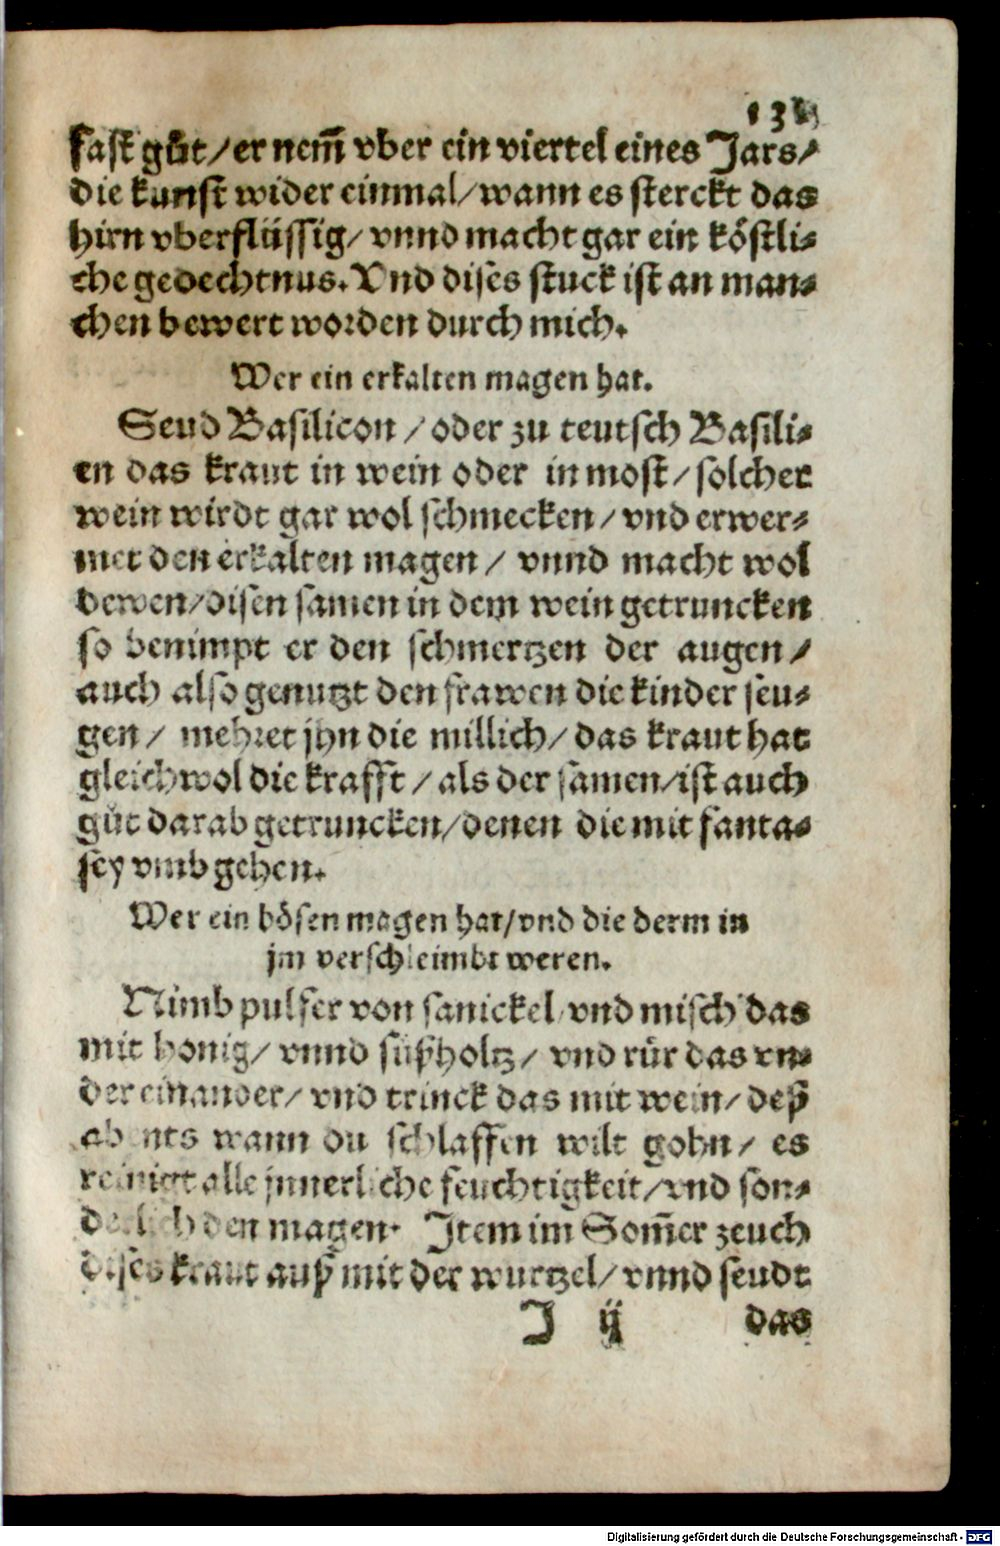 fast gůt / er nem̄ vber ein viertel eines Jars /
die kunst wider einmal / wann es sterckt das
hirn vberflüssig / vnnd macht gar ein köstli⸗
che gedechtnus. Vnd dises stuck ist an man⸗
chen bewert worden durch mich.
Wer ein erkalten magen hat.
Seud Basilicon / oder zu teutsch Basili⸗
en das kraut in wein oder in most / solcher
wein wirdt gar wol schmecken / vnd erwer⸗
met den erkalten magen / vnnd macht wol
dewen / disen samen in dem wein getruncken
so benimpt er den schmertzen der augen /
auch also genutzt den frawen die kinder seu⸗
gen / mehret jhn die millich / das kraut hat
gleich wol die krafft / als der samen / ist auch
gůt darab getruncken / denen die mit fanta⸗
sey vmb gehen.
Wer ein bösen magen hat / vnd die derm in
jm verschleimbt weren.
Nimb pulfer von sanickel vnd misch das
mit honig / vnnd süßholtz / vnd rür das vn⸗
der einander / vnd trinck das mit wein / deß
abents wann du schlaffen wilt gohn / es
reinigt alle jnnerliche feuchtigkeit / vnd son⸗
derlich den magen. Item im Som̄er zeuch
dises kraut auß mit der wurtzel / vnnd seudt
J ij das
Digitalisierung gefördert durch die Deutsche Forschungsgemeinschaft - DFG